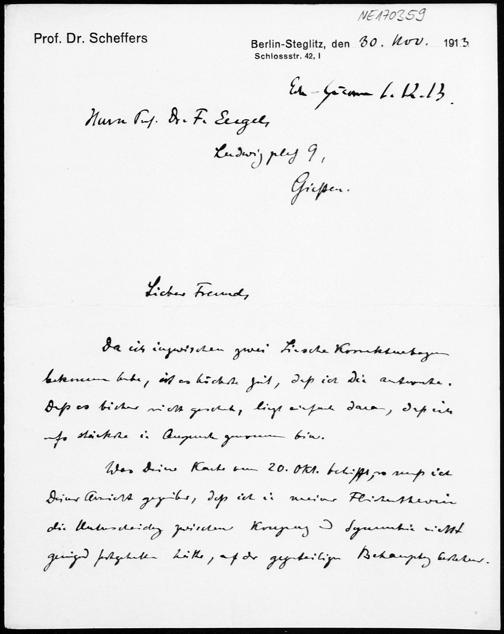 NE170359
Prof. Dr. Scheffers
Berlin-Steglitz, den 30. Nov. 1913
Schlossstr. 42, I
1.12.13.
Herrn Prof. Dr. Fr. Engel
Ludwigplatz 9,
Gießen.
Lieber Freund,
Da ich inzwischen zwei Liesche Korrekturbogen
bekommen habe, ist es höchste Zeit, daß ich Dir antworte.
Daß es bisher nicht geschah, liegt einfach daran, daß ich
aufs stärkste in Anspruch genommen bin.
Was Deine Karte vom 20. Okt. betrifft, so muß ich
Deiner Ansicht gegenüber, daß ich in meiner Flächentheorie
die Unterscheidung zwischen Kongruenz und Symmetrie nicht
genügend festgehalten hätte, auf der gegenteiligen Behauptung bestehen.